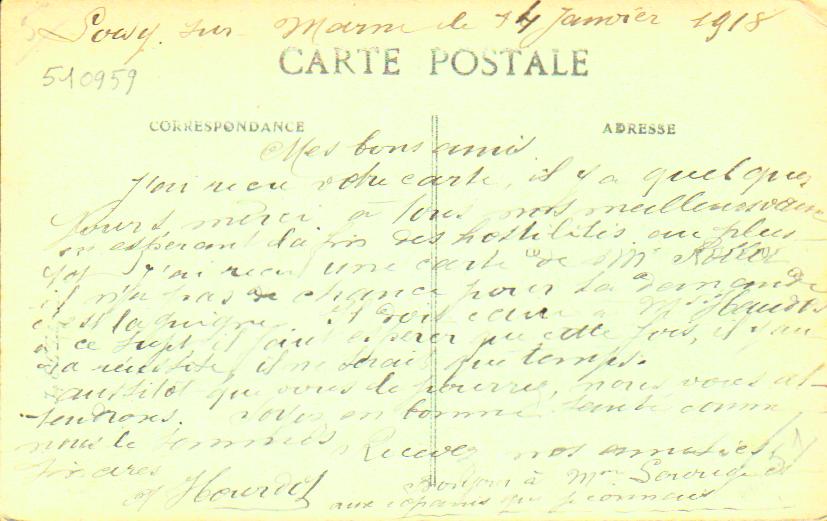 sur Marne le 14 Janvier 1918
CARTE POSTALE
510959
CORRESPONDANCE
ADRESSE
Mes bons amis
J'ai recu votre carte, il y a quelques
jours, merci à tous nos meilleurs voeux
en esperant la fin des hostilités au plus
J'ai recu une carte de Mr
il n'a pas de chance pour sa demande
c'est la guigne. Il doit à Mr
à ce sujet il faut espérer que cette fois, il y au
sa réussite, il ne serait que temps.
aussitôt que vous le pourrez, nous vous at
tendrons. Soyez en bonne santé comme
nous le sommes Recevez nos amitiés
sincères
Hourdot
Bonjour à Mme
aux copains que je connais